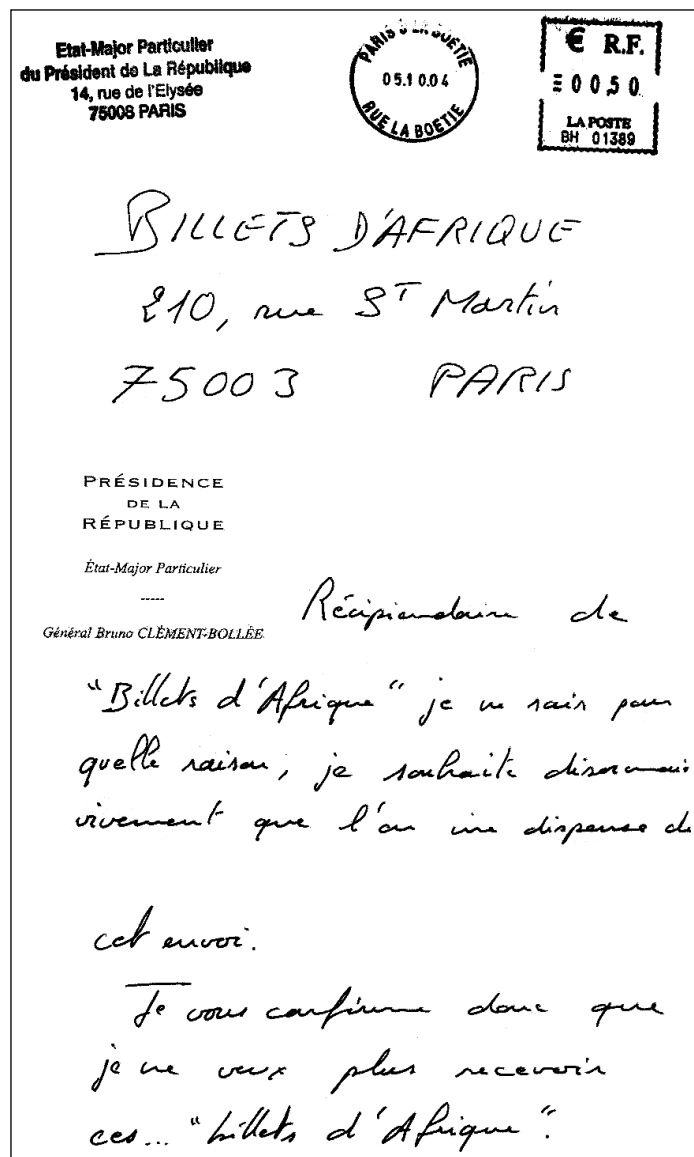 Etat-Major Particulier
du Président de La République
14, rue de l'Elysée
75008 PARIS
PARIS 8 LA BOETIE
05.10.04
RUE LA BOETIE
€ R.F.
= 00,50
LA POSTE
BH 01389
BILLETS D'AFRIQUE
210, rue ST Martin
75003 PARIS
PRÉSIDENCE
DE LA
RÉPUBLIQUE
État-Major Particulier
-----
Général Bruno CLÉMENT-BOLLÉE
Récipiendaire de
"Billets d'Afrique" je ne sais pour
quelle raison, je souhaite désormais
vivement que l'on me dispense de
cet envoi.
Je vous confirme donc que
je ne veux plus recevoir
ces... "billets d'Afrique".